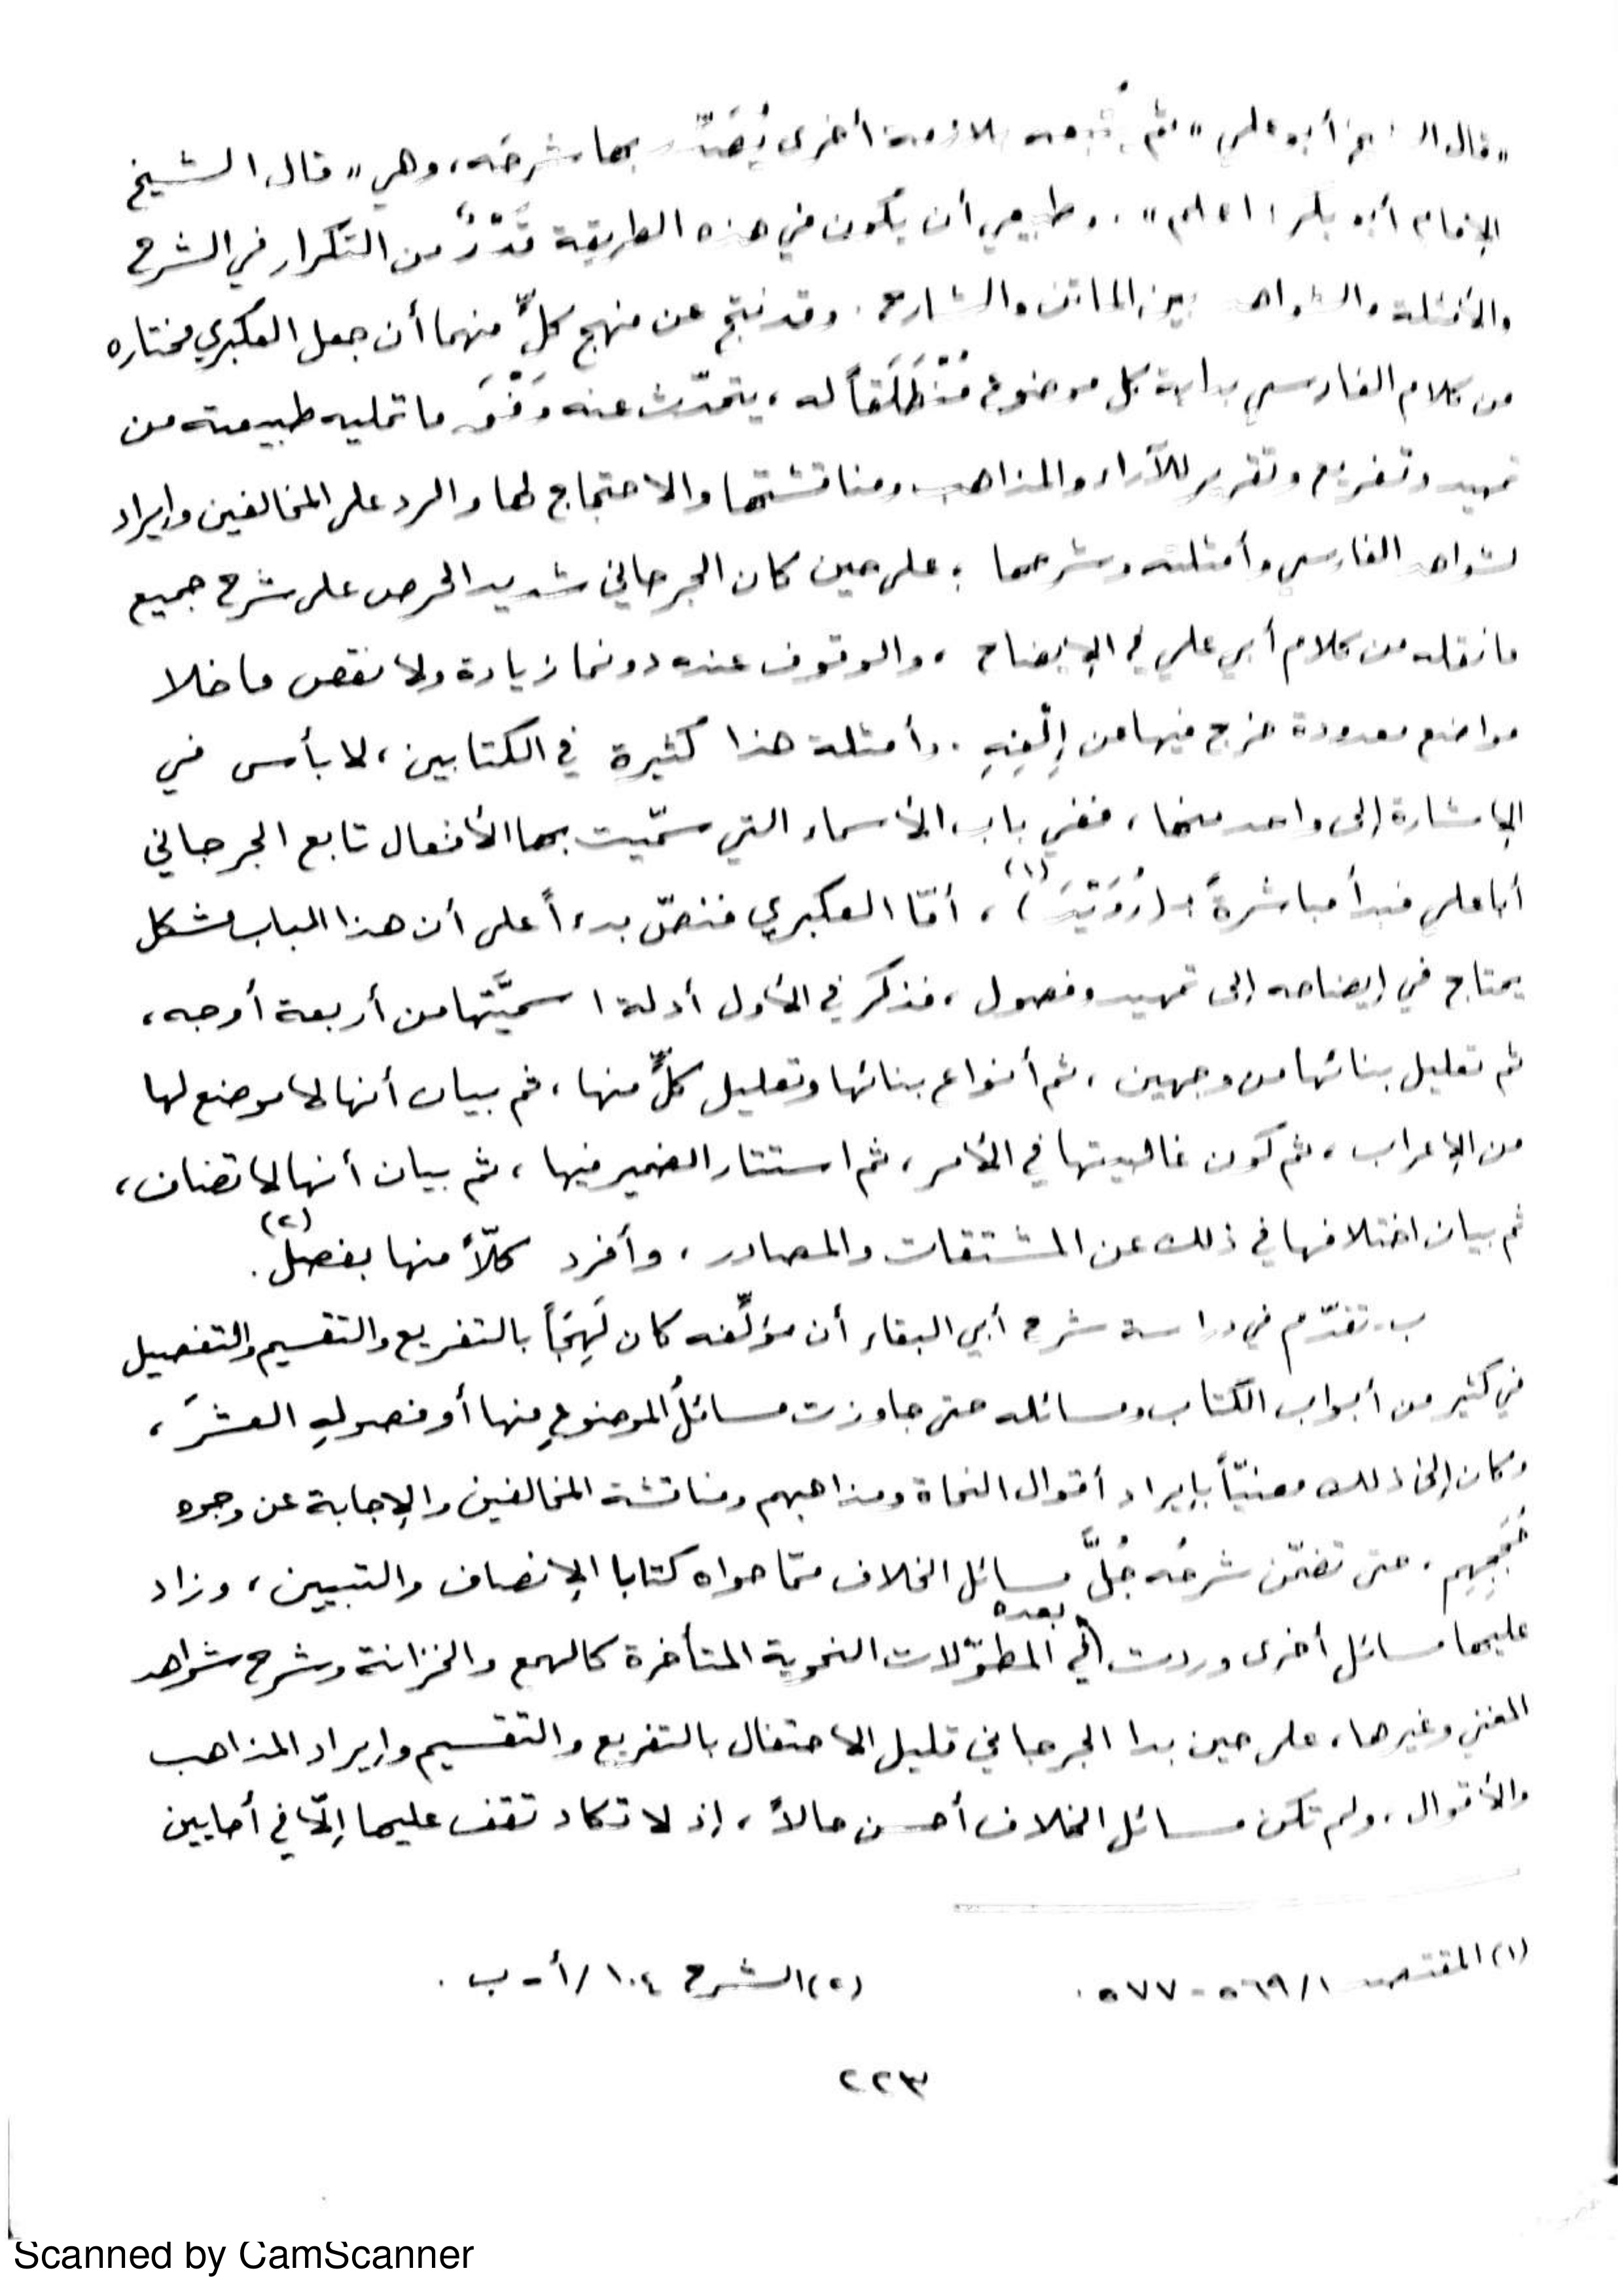 «قال الشيخ أبو علي» ثم يُتبعه بلازمة أخرى يُصَدِّر بها شرحَه، وهي «قال الشيخ
الإمام أبو بكر: اعلم». وطبيعي أن يكون في هذه الطريقة قَدْرٌ من التكرار في الشرح
والأمثلة والشواهد بين الماتن والشارح. وقد نتج عن منهج كلٍّ منهما أن جعل العكبري مختاره
من كلام الفارسي بداية كل موضوع مُنْطَلَقاً له، يتحدّث عنه وَفْقَ ما تمليه طبيعته من
تمهيد وتفريع وتقرير للآراء والمذاهب ومناقشتها والاحتجاج لها والرد على المخالفين وإيراد
لشواهد الفارسي وأمثلته وشرحها، على حين كان الجرجاني شديد الحرص على شرح جميع
ما نقله من كلام أبي علي في الإيضاح، والوقوف عنده دونما زيادة ولا نقص ما خلا
مواضع معدودة خرج فيها من إلْفِهِ. وأمثلة هذا كثيرة في الكتابين، لا بأس في
الإشارة إلى واحد منها، ففي باب الأسماء التي سمّيت بها الأفعال تابع الجرجاني
أبا علي فبدأ مباشرةً بـ (رُوَيْدَ)(١)، أمّا العكبري فنصّ بدءاً على أن هذا الباب مشكل
يحتاج في إيضاحه إلى تمهيد وفصول، فذكر في الأول أدلة اسميَّتها من أربعة أوجه،
ثم تعليل بنائها من وجهين، ثم أنواع بنائها وتعليل كلٍّ منها، ثم بيان أنها لا موضع لها
من الإعراب، ثم كون غالبيتها في الأمر، ثم استتار الضمير فيها، ثم بيان أنها لا تضاف،
ثم بيان اختلافها في ذلك عن المشتقات والمصادر، وأفرد كلّاً منها بفصل(٢).
ب- تقدّم في دراسة شرح أبي البقاء أن مؤلِّفه كان لَهِجَاً بالتفريع والتقسيم والتفصيل
في كثير من أبواب الكتاب ومسائله حتى جاوزت مسائلُ الموضوعِ منها أو فصولِهِ العشرَ،
وكان إلى ذلك معنيّاً بإيراد أقوال النحاة ومذاهبهم ومناقشة المخالفين والإجابة عن وجوه
حُجَجِهِم، حتى تضمّن شرحُه جُلَّ مسائل الخلاف ممّا حواه كتابا الإنصاف والتبيين، وزاد
عليهما مسائل أخرى وردت بعده في المطوّلات النحوية المتأخرة كالهمع والخزانة وشرح شواهد
المغني وغيرها، على حين بدا الجرجاني قليل الاحتفال بالتفريع والتقسيم وإيراد المذاهب
والأقوال، ولم تكن مسائل الخلاف أحسن حالاً، إذ لا تكاد تقف عليها إلّا في أحايين
(١) المقتصد ١/ ٥٦٩ - ٥٧٧.
(٢) الشرح ١٠٤ /أ - ب.
٢٢٣
Scanned by CamScanner